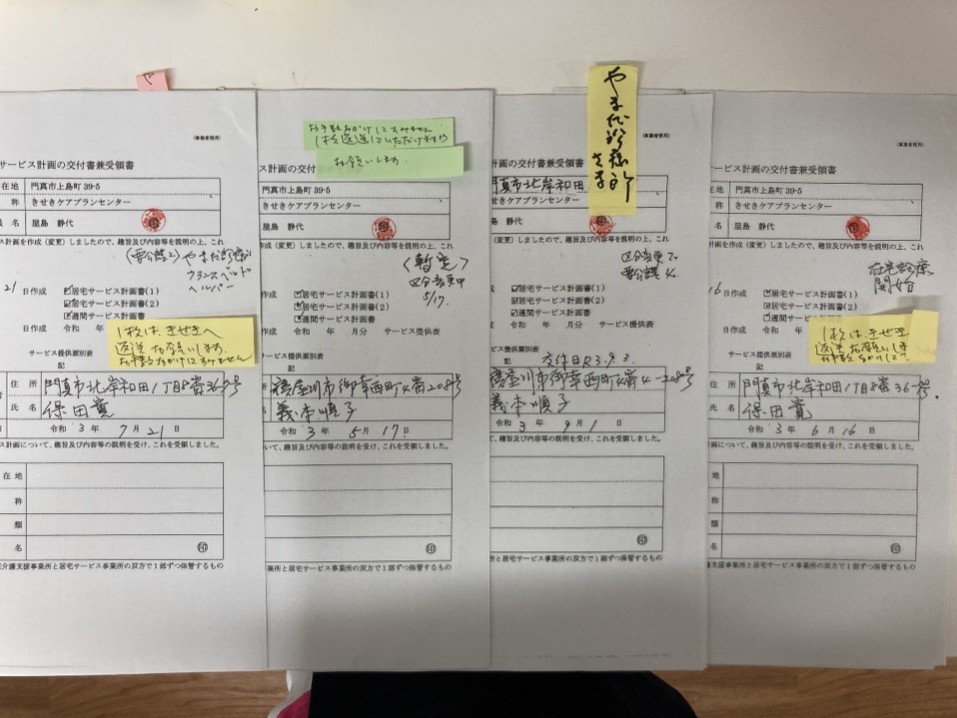 や
(事業者控用)
サービス計画の交付書兼受領書
在地 門真市上島町 39-5
称 きせきケアプランセンター
員名 屋島 静代 印
ス計画を作成(変更)しましたので、趣旨及び内容等を説明の上、これ
(要介護2)
ヘルパー
21 日作成
居宅サービス計画書(1)
居宅サービス計画書(2)
週間サービス計画書
日作成 令和 年
1枚は、きせきへ
返送お願いします。
お手数おかけしてすみません
サービス提供票別表
記
住所 門真市北岸和田1丁目8番36-
氏名 保田寛
令和 3 年 7 月 21 日
ス計画について、趣旨及び内容等の説明を受け、これを受領しました。
在地
称
類
名 印
宅介護支援事業所と居宅サービス事業所の双方で1部ずつ保管するもの
お手数おかけしてすみません
1枚返送していただけますか
お願いします。
計画の交付
門真市上島町 39-5
きせきケアプランセンター
屋島 静代 印
作成(変更)しましたので、趣旨及び内容等を説明の上、これ
(暫定)
区分変更中
5/17.
居宅サービス計画書(1)
居宅サービス計画書(2)
週間サービス計画書
令和 年 月分 サービス提供表
ス提供票別表
記
寝屋川市御幸西町4番208号
義本順子
令和 3 年 5 月 17 日
いて、趣旨及び内容等の説明を受け、これを受領しました。
印
業所と居宅サービス事業所の双方で1部ずつ保管するもの
さま
(事業者控用)
計画の交付書兼受領書
門真市北岸和田
きせきケアプランセンター
屋島 静代 印
作成(変更)しましたので、趣旨及び内容等を説明の上、これ
区分変更で
要介護4
居宅サービス計画書(1)
居宅サービス計画書(2)
週間サービス計画書
令和 年 月分 サービス提供表
ス提供票別表
記
交付日R3.9.3.
寝屋川市御幸西町4番4-208号
義本順子
令和 3 年 9 月 1 日
いて、趣旨及び内容等の説明を受け、これを受領しました。
印
業所と居宅サービス事業所の双方で1部ずつ保管するもの
(事業者控用)
サービス計画の交付書兼受領書
門真市上島町 39-5
きせきケアプランセンター
屋島 静代 印
計画を作成(変更)しましたので、趣旨及び内容等を説明の上、これ
在宅診療
開始
16 日作成
居宅サービス計画書(1)
居宅サービス計画書(2)
週間サービス計画書
日作成 令和 年 月
1枚は、きせき
返送お願いしま
お手数おかけして
サービス提供票別表
記
住所 門真市北岸和田1丁目8番36-
氏名 保田寛
令和 3 年 6 月 16 日
画について、趣旨及び内容等の説明を受け、これを受領しました。
地
称
類
名 印
護支援事業所と居宅サービス事業所の双方で1部ずつ保管するもの